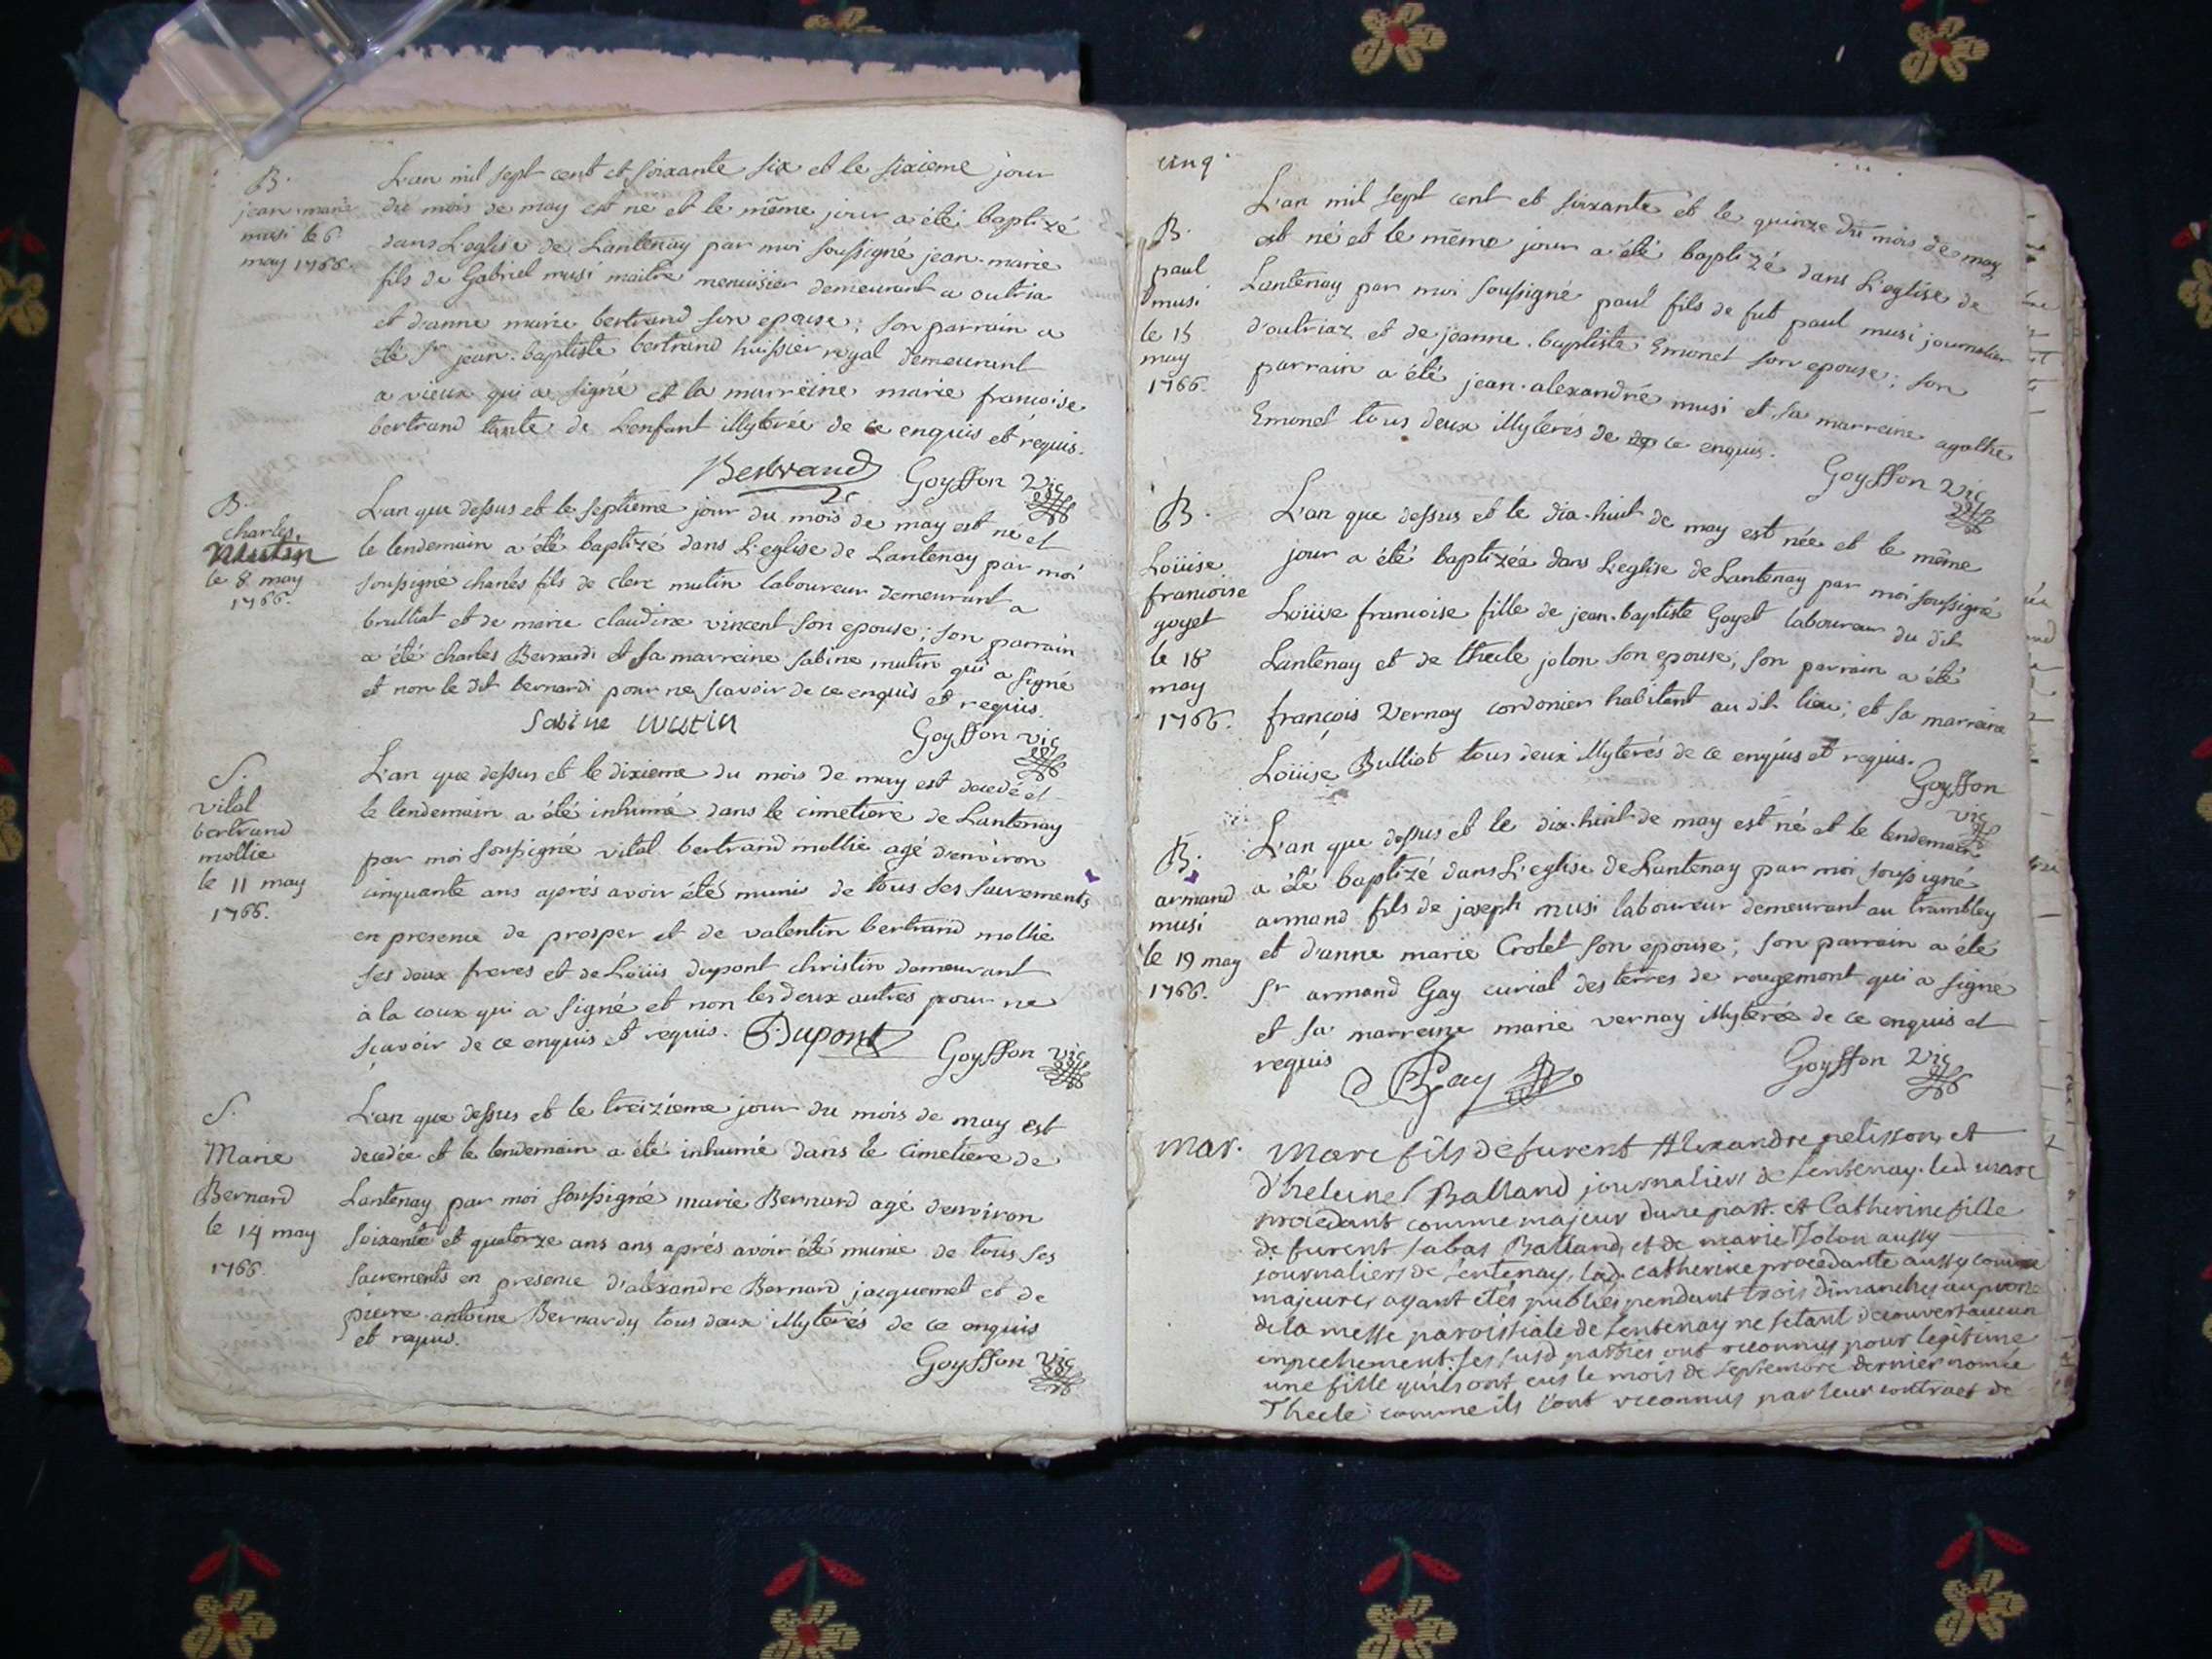 B.
jean-marie
musi le 6.
may 1766.
L'an mil sept cent et soixante six et le sixieme jour
du mois de may est né et le même jour a été baptizé
dans L'eglise de Lantenay par moi soussigné jean-marie
fils de Gabriel musi maitre menuisier demeurant a outria
et d'anne marie bertrand son epouse; son parrain a
été Sr jean-baptiste bertrand huissier royal demeurant
a vieux qui a signé et la marreine marie francoise
bertrand tante de L'enfant illyterée de ce enquis et requis.
Bertrand Goyffon Vic
B.
charles
Mutin
le 8 may
1766.
L'an que dessus et le septieme jour du mois de may est né et
le lendemain a été baptizé dans L'eglise de Lantenay par moi
soussigné charles fils de clerc mutin laboureur demeurant a
brulliat et de marie claudine vincent son epouse; son parrain
a été charles Bernardi et sa marreine sabine mutin qui a signé
et non le dit bernardi pour ne scavoir de ce enquis et requis.
Sabine mutin
Goyffon vic
S.
vital
bertrand
mollie
le 11 may
1766.
L'an que dessus et le dixieme du mois de may est decedé et
le lendemain a été inhumé dans le cimetiere de Lantenay
par moi soussigné vital bertrand mollie agé d'environ
cinquante ans aprés avoir été muni de tous ses sacrements
en presence de prosper et de valentin bertrand mollie
ses deux freres et de Loüis dupont christin demeurant
à la coux qui a signé et non les deux autres pour ne
scavoir de ce enquis et requis. Dupont
Goyffon vic
S.
Marie
Bernard
le 14 may
1766.
L'an que dessus et le treizieme jour du mois de may est
decedée et le lendemain a été inhumée dans le cimetiere de
Lantenay par moi soussigné marie Bernard agé d'environ
soixante et quatorze ans ans aprés avoir été munie de tous ses
sacrements en presence d'alexandre Bernard jacquemet et de
pierre-antoine Bernardy tous deux illyterés de ce enquis
et requis.
Goyffon vic
cinq.
B.
paul
musi
le 15
may
1766.
L'an mil sept cent et soixante et le quinze du mois de may
est né et le même jour a été baptizé dans L'eglise de
Lantenay par moi soussigné paul fils de fut paul musi journalier
d'outriaz et de jeanne-baptiste Emonet son epouse; son
parrain a été jean-alexandre musi et sa marreine agathe
Emonet tous deux illyterés de ce enquis.
Goyffon Vic
B.
Loüise
francoise
goyet
le 18
may
1766.
L'an que dessus et le dix-huit de may est née et le même
jour a été baptizée dans L'eglise de Lantenay par moi soussigné
Loüise francoise fille de jean-baptiste Goyet laboureur du dit
Lantenay et de thecle jolon son epouse; son parrain a été
françois Vernay cordonier habitant au dit lieu; et sa marreine
Loüise Bulliot tous deux illyterés de ce enquis et requis.
Goyffon
vic
B.
armand
musi
le 19 may
1766.
L'an que dessus et le dix-huit de may est né et le lendemain
a été baptizé dans L'eglise de Lantenay par moi soussigné
armand fils de joseph musi laboureur demeurant au trambley
et d'anne marie Crolet son epouse; son parrain a été
Sr armand Gay curial des terres de rougemont qui a signé
et sa marreine marie vernay illyterée de ce enquis et
requis
Gay
Goyffon Vic
mar.
Marc fils de furent Alexandre pelisson et
d'heleine Balland journaliers de Lentenay. led. marc
procedant comme majeur d'une part. et Catherine fille
de furent sabas Balland, et de marie Jolon aussy
journaliers de Lentenay, lad. catherine procedante aussy comme
majeure, ayant étés publiés pendant trois dimanches au prone
de la messe paroissiale de Lentenay ne s'etant decouvert aucun
enpechement. les susd parties ont reconnus pour legitime
une fille qu'ils ont eus le mois de septembre dernier nomée
Thecle comme ils l'ont reconnus par leur contract de